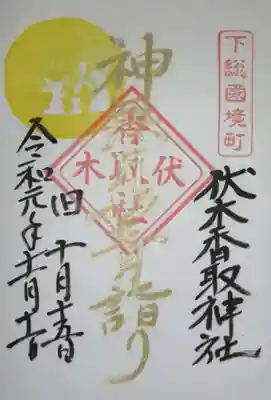 下総國境町
伏木香取神社
神
詣り
伏木
香取社
旧十月十五日
令和元年十一月十一日